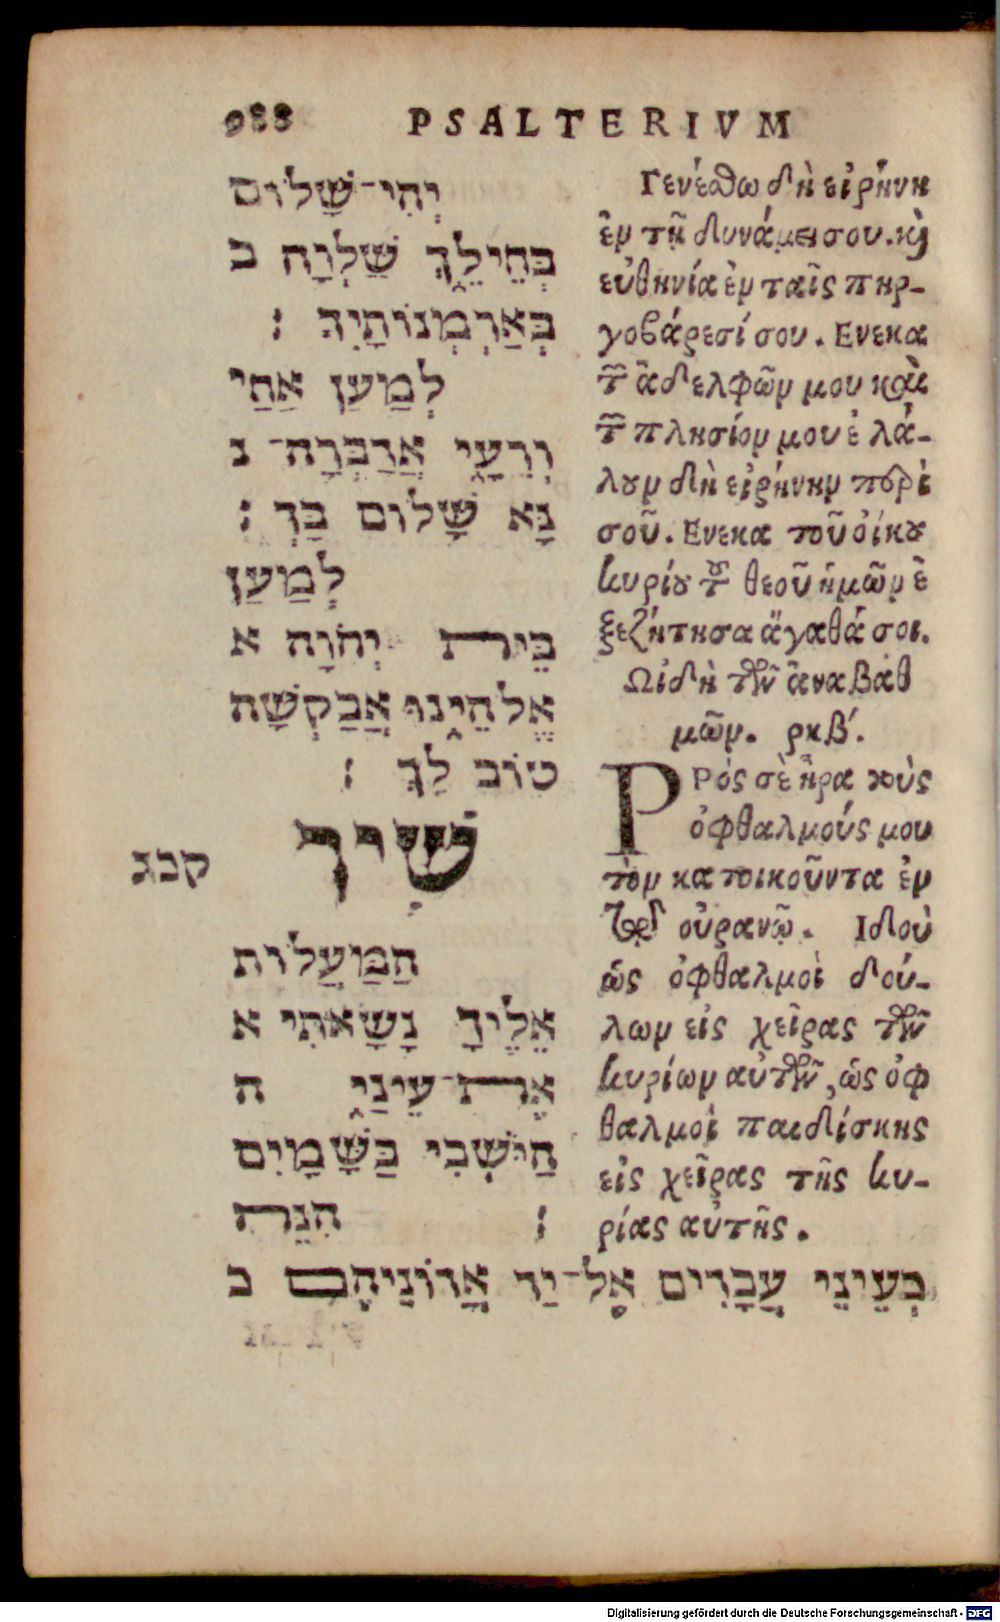 988 PSALTERIVM
יְהִי־שָׁלוֹם
בְּחֵילֵ֑ךְ שַׁלְוָה ב
בְּאַרְמְנוֹתָיִךְ :
לְמַעַן אַחַי
וְרֵעָ֑י אֲדַבְּרָה־ נ
נָּא שָׁלוֹם בָּךְ :
לְמַעַן
בֵּית יְהֹוָה א
אֱלֹהֵ֑ינוּ אֲבַקְשָׁה
טוֹב לָךְ :
שִׁיר
קכג
הַמַּעֲלוֹת
אֵלֶיךָ נָשָׂאתִי א
אֶת־עֵינַ֑י ה
הַיֹּשְׁבִי בַּשָּׁמָיִם
: הִנֵּה
כְעֵינֵי עֲבָדִים אֶל־יַד אֲדוֹנֵיהֶם כ
Γενέσθω δὴ εἰρήνη
ἐν τῇ δυνάμει σου. καὶ
εὐθηνία ἐν ταῖς πηρ-
γοβάρεσί σου. Ενεκα
τῶν ἀδελφῶν μου καὶ
τῶν πλησίον μου ἐλά-
λουν δὴ εἰρήνην περὶ
σοῦ. Ενεκα τοῦ οἴκου
κυρίου τοῦ θεοῦ ἡμῶν ἐ
ξεζήτησα ἄγαθά σοι.
Ωἰδὴ τῶν ἀναβαθ
μῶν. ρκβ΄.
ΡΡός σὲ ἦρα τοὺς
ὀφθαλμούς μου
τὸν κατοικοῦντα ἐν
τῷ οὐρανῷ. Ιδοὺ
ὡς ὀφθαλμοὶ δού-
λων εἰς χεῖρας τῶν
κυρίων αὐτῶν, ὡς ὀφ
θαλμοὶ παιδίσκης
εἰς χεῖρας τῆς κυ-
ρίας αὐτῆς.
Digitalisierung gefördert durch die Deutsche Forschungsgemeinschaft - DFG